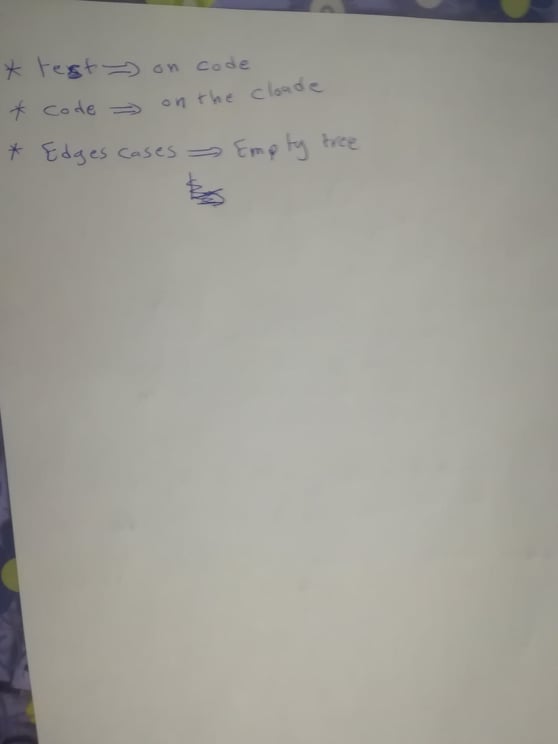 * test => on code
* code => on the cloade
* Edges cases => Empty tree